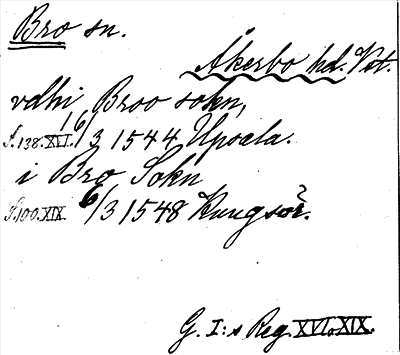 Bro sn.
Åkerbo hd. Vst.
vdhi Broo sokn,
S.138.XVI. 16/3 1544 Upsala.
i Bro Sokn
S.100.XIX. 6/3 1548 Kungsör.
G. I:s Reg. XVI. XIX.